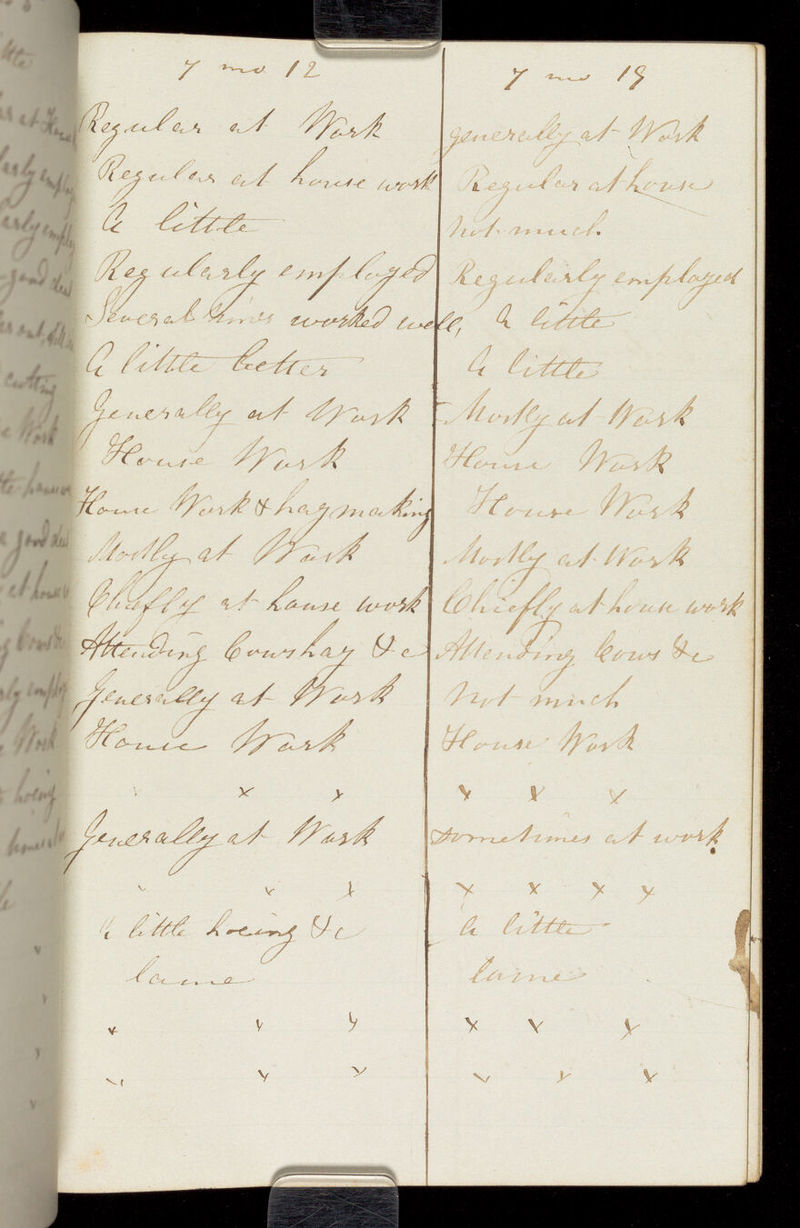 7 mo 12 7 mo 19
Regular at Work generally at Work
Regular at house work Regular at house
A little not much
Regularly employed Regularly employed
Several times worked well, A little
A little better A little
Generally at Work Mostly at Work
House Work House Work
House Work & haymaking House Work
Mostly at Work Mostly at Work
Chiefly at house work Chiefly at house work
Attending Cows hay &c Attending Cows &c
Generally at Work Not much
House Work House Work
" x x x x x
Generally at Work sometimes at work
" x x x x x x
A little hoeing &c A little
lame lame
x x x x x x
x x x x x x